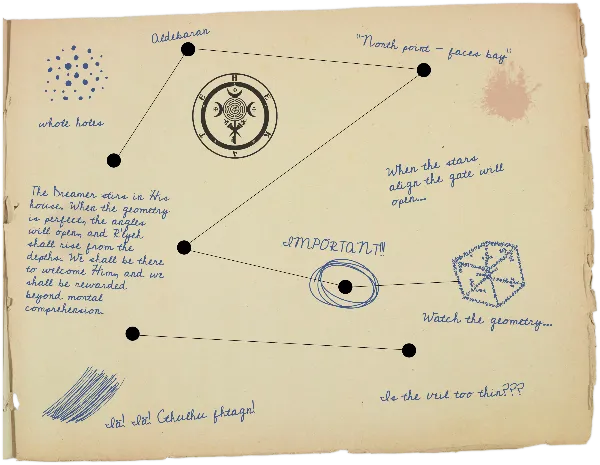 Aldebaran
"North point – faces bay"
HEKATE
whote hotes
When the stars
align the gate will
open...
The Dreamer stirs in His
house. When the geometry
is perfect, the angles
will open, and R'lyeh
shall rise from the
depths. We shall be there
to welcome Him, and we
shall be rewarded
beyond mortal
comprehension.
IMPORTANT!!
Watch the geometry...
Is the veil too thin???
Iä! Iä! Cthulhu fhtagn!